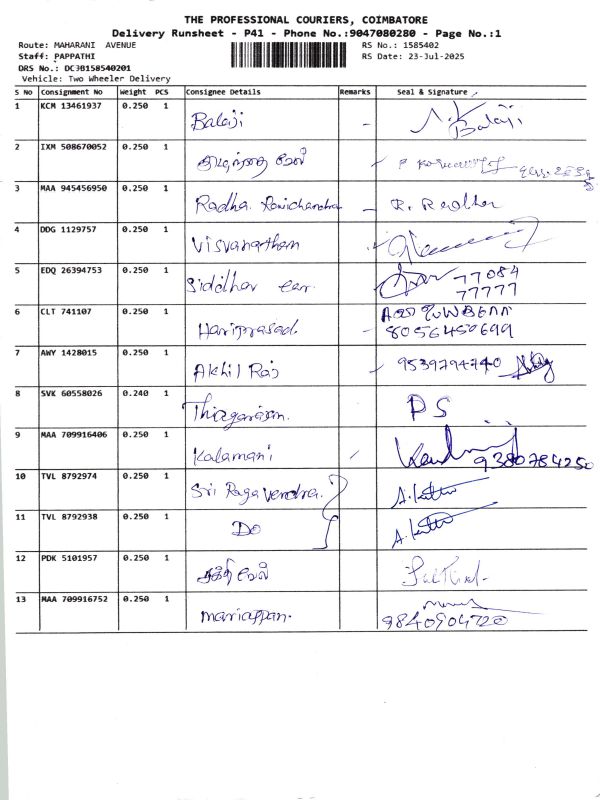 THE PROFESSIONAL COURIERS, COIMBATORE
Delivery Runsheet - P41 - Phone No.:9047080280 - Page No.:1
Route: MAHARANI AVENUE RS No.: 1585402
Staff: PAPPATHI RS Date: 23-Jul-2025
DRS No.: DCJB158540201
Vehicle: Two Wheeler Delivery
S No Consignment No Weight PCS Consignee Details Remarks Seal & Signature
1 KCM 13461937 0.250 1 Balaji - Balaji
2 IXM 508670052 0.250 1
3 MAA 945456950 0.250 1 Radha. Ravichandran - R. Radha
4 DDG 1129757 0.250 1 Visvanathan
5 EDQ 26394753 0.250 1 Siddhar 77084
77777
6 CLT 741107 0.250 1 Hariprasad. - 8056450699
7 AWY 1428015 0.250 1 Akhil Raj 9539794740
8 SVK 60558026 0.240 1 Thiagarajan. PS
9 MAA 709916406 0.250 1 Kalamani 9380784250
10 TVL 8792974 0.250 1 Sri Ragavendra.
11 TVL 8792938 0.250 1 Do
12 PDK 5101957 0.250 1 சக்தி வேல்
13 MAA 709916752 0.250 1 mariappan. 9840904720